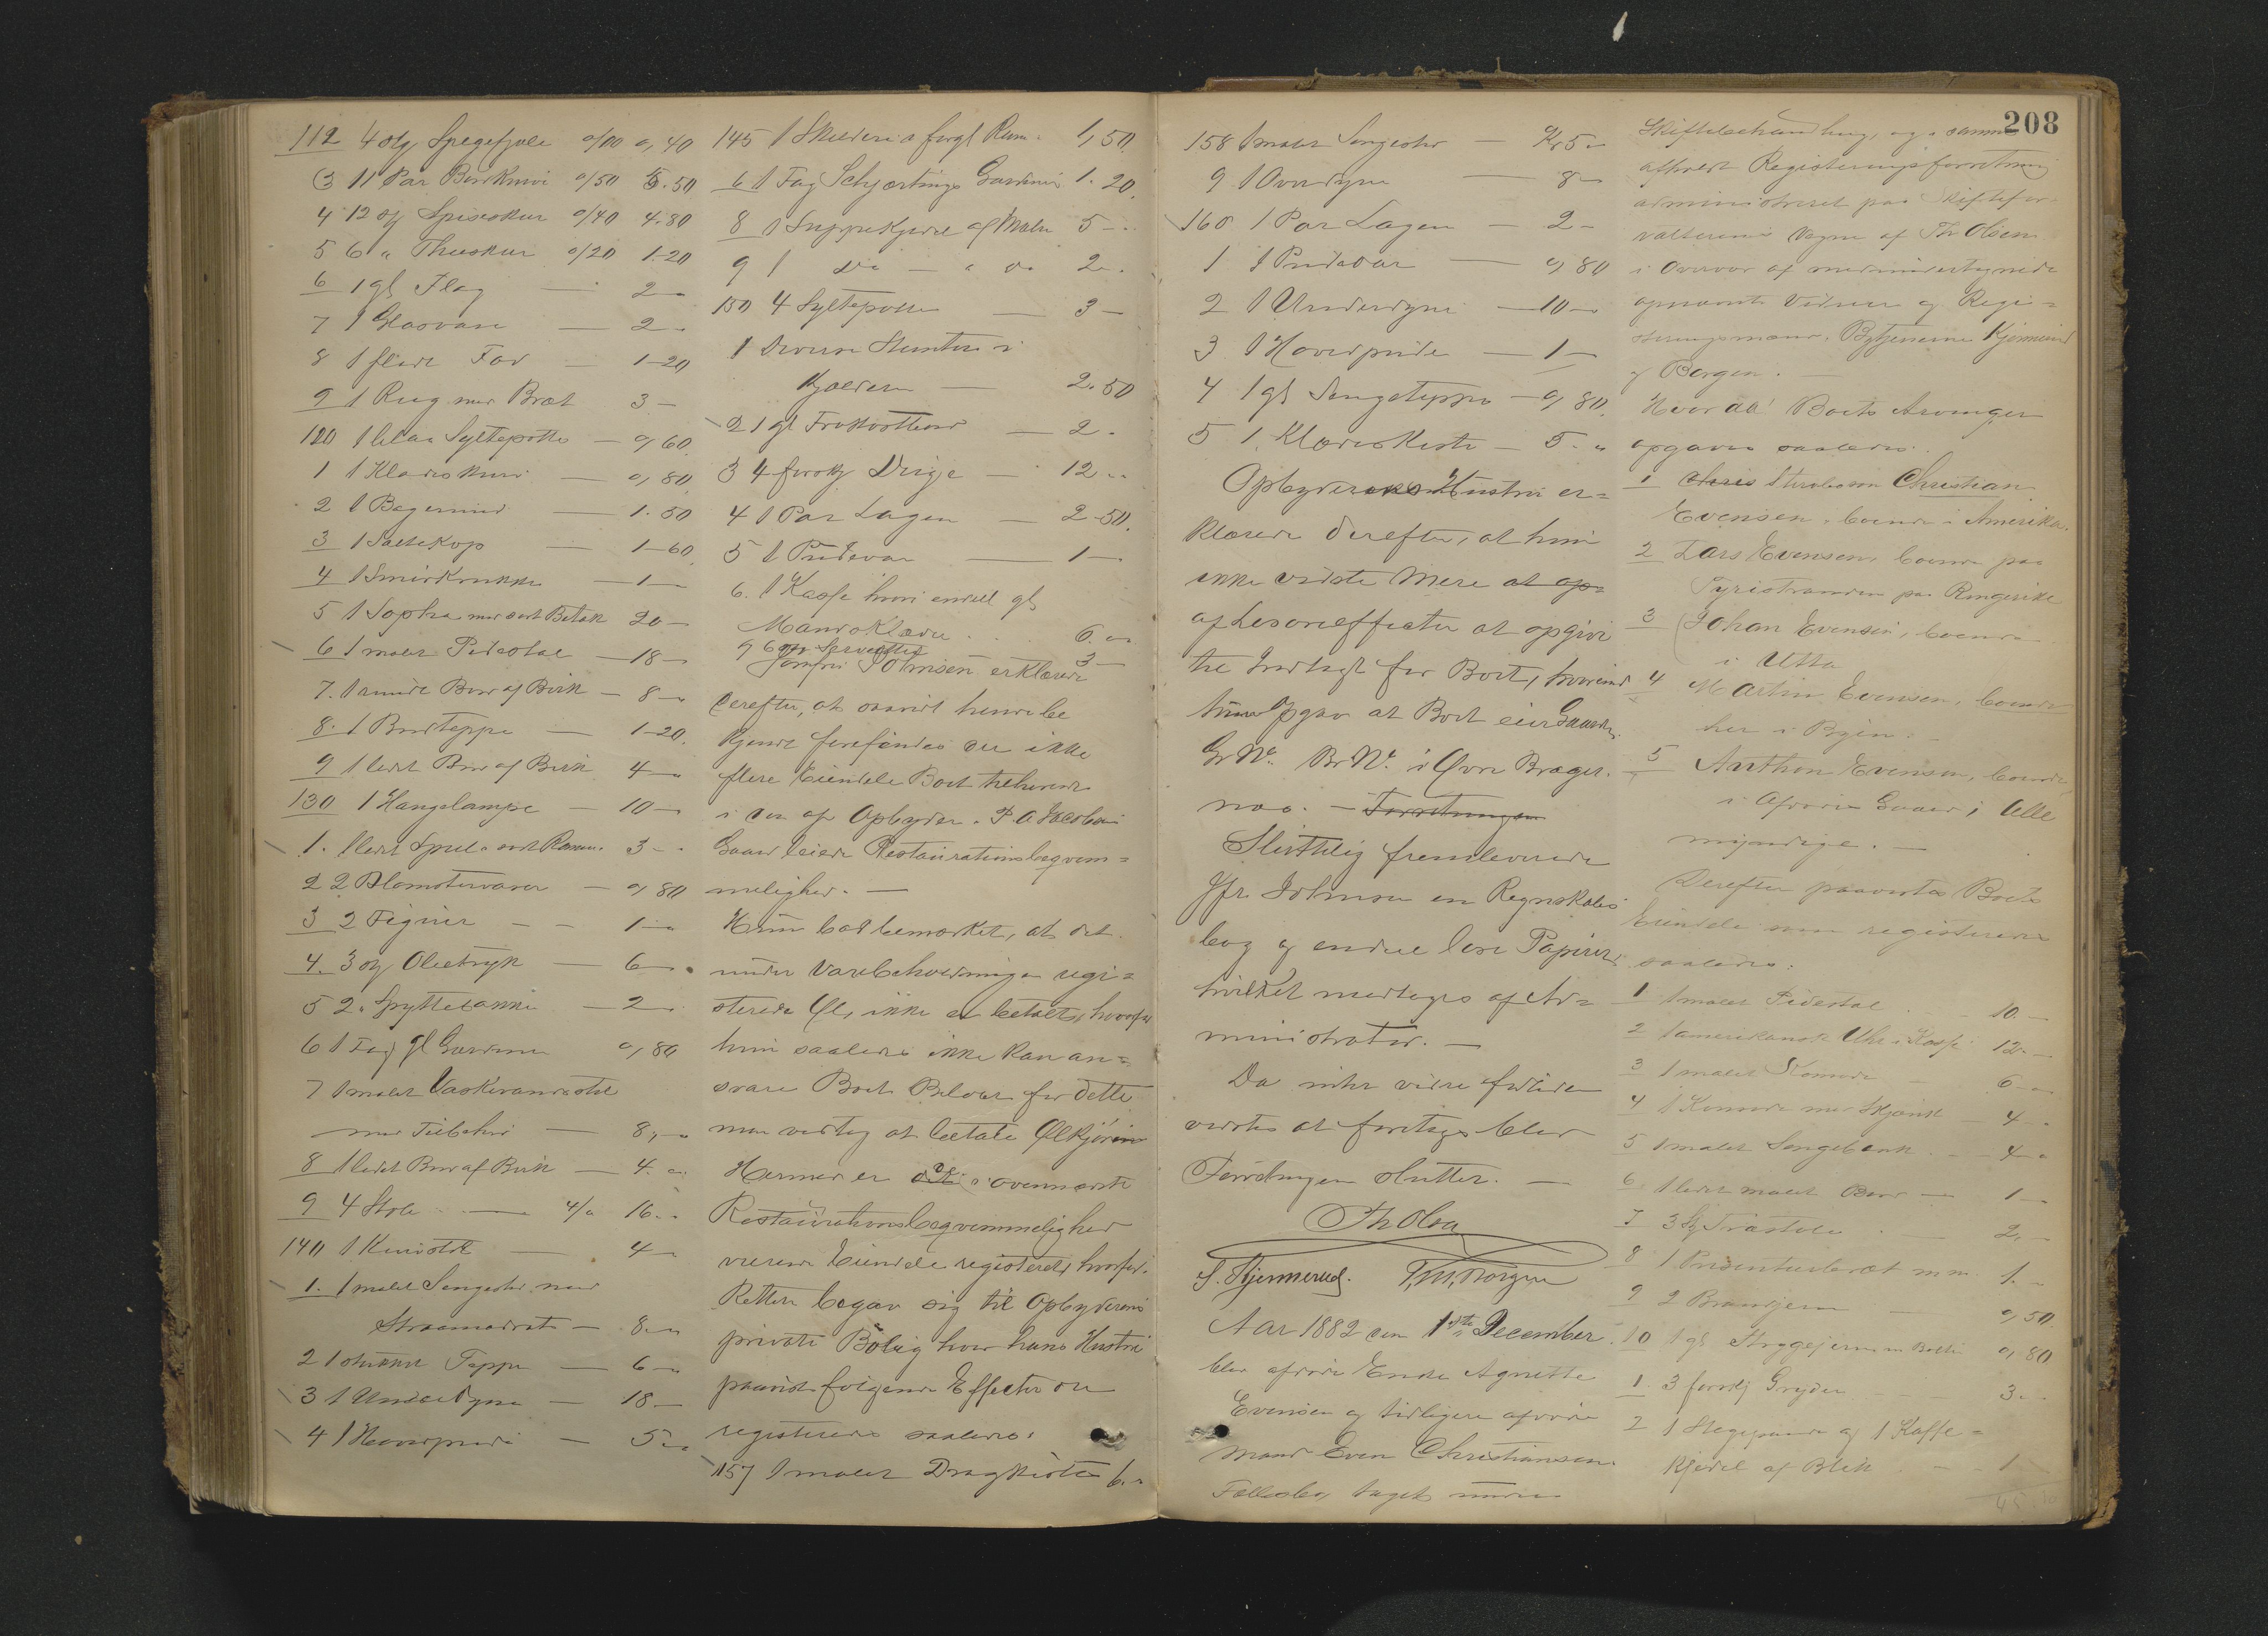 112 4 stkr Spegefjæle a/10 0,40
3 11 Par Bordknive a/50 5.50
4 12 stk Spiseskeer a/40 4.80
5 6 " Theeskeer a/20 1.20
6 1 gl Flag — 2 "
7 1 Glasvase — 2 -
8 1 Fad — 1-20
9 1 med Bræt 3 -
120 1 Syltepotte — 0,60
1 1 Klædeskurv — 0,80
2 1 — 1.50
3 1 Saltekop — 1-60
4 1 Smørkrukke — 1 —
5 1 Sopha med sort Betræk 20 —
6 1 malet Pidestal — 18 —
7. 1 rundt Bord af Birk — 8 -
8. 1 Bordteppe — 1-20.
9 1 lidet Bord af Birk 4 —
130 1 Hængelampe — 10 —
1. 1 lidet Speil i sort Ramme. 3 - -
2 2 Blomstervaser — 0,80
3 2 Figurer — - 1 -
4. 3 stk Olietryk — 6 —
5 2. Spyttebakke — 2
6 1 Fag gl Gardiner 0,80
7 1 malet Vaskevandsstol
med Tilbehør — 8, -
8 1 lidet Bord af Birk — 4. "
9 4 Stole — 4/" 16. -
140 1 Kurvstol — 4 -
1. 1 malet Sengested med
Straamadrats — 8. "
2 1 strikket Teppe — 6 -
3 1 Underdyne — 18 —
4 1 Hovedpude — 5. "
145 1 Skilderi i forgl Ram. 1,50.
6 1 Fag Schjærtings Gardiner 1.20.
8 1 Suppekjedel af Malm 5 - -
9 1 do — " do 2. .
150 4 Syltepotter — 3 —
1 diverse i
Kjælderen — 2.50
2 1 gl Frokostbord — 2 .
3 4 forskj Duge — 12 "
4 1 Par Lagen — 2-50.
5 1 Pudevar — 1 —
6. 1 Kasse hvori endeel gl
Mandsklæder . . 6. "
9 6 Servietter 3 —
Jomfru Johnsen erklærede
derefter, at saavidt hende be
kjendt forefandtes der ikke
flere Eiendele Boet tilhørende
i den af Opbyder i P. A Jacobsens
Gaard leiede Restaurationsbeqvem=
melighed. —
Hun bad bemærket, at det
under Varebeholdningen regi=
sterede Øl, ikke er betalt, hvorfor
hun saaledes ikke kan an=
svare Boet Beløbet for dette
men vedtog at betale Ølkjøreren
Hermed er de i ovennævnte
Restaurationsbeqvemmelighed
værende Eiendele registeret, hvorfor
Retten begav sig til Opbyderens
private Bolig hvor hans Hustru
paaviste følgende Effecter der
registeredes saaledes:
157 1 malet Dragkiste 6. "
158 1 malet Sengested — Kr 5 "
9 1 Overdyne — 8 —
160 1 Par Lagen — 2 -
1 1 Pudevar — 0,80
2 1 Underdyne — 10 —
3 1 Hovedpude — 1 —
4 1 gl Sengeteppe — 0,80.
5 1 Klædeskiste — 5. "
Opbyderens Hustru er=
klærede derefter, at hun
ikke vidste mere at op=
af Løsøreeffecter at opgive
til Indtægt for Boet, hvorimod
hun opgav at Boet eier Gaarden
Gr No. Br No. i Øvre Brager=
næs. — Forretningen
Sluttelig fremleverede
Jfr Johnsen en Regnskabs
bog og endeel løse Papirer
hvilket modtoges af Ad=
ministrator. —
Da intet videre fortiden
vidstes at foretages blev
Forretningen sluttet. —
Th Olsen
S. Kjennerud. Borgen
Aar 1882 den 1ste December
blev afdøde Enke Agnette
Evensen og tidligere afdøde
Mand Even Christiansens
Fællesbo, taget under
208
Skiftebehandling, og i samme
afholdt Registreringsforretning
administreret paa Skiftefor=
valterens Vegne af Th Olsen
i Overvær af medundertegnede
opnævnte Vidner og Regi=
streringsmænd, Bytjenerne Kjennerud
og Borgen. —
Hvorda Boets Arvinger
opgaves saaledes.
1 Christian
Evensen, boende i Amerika.
2 Lars Evensen, boende paa
Tyristranden paa Ringerike
3 Johan Evensen, boende
i Utta
4 Martin Evensen, boende
her i Byen. -
5 Anthon Evensen, boende
i Afdødes Gaard; Alle
myndige. —
Derefter paavistes Boets
Eiendele som registreredes
saaledes:
1 1 malet Pidestal . — 10. —
2 1 amerikansk Uhr i Kasse 12. —
3 1 malet Komode — 6 - "
4 1 Komode med Skjænk — 4 .
5 1 malet Sengebænk . — 4 - "
6 1 lidet malet Bord — 1 —
7 3 Stk Træstole . — 2, —
8 1 Presenteerbræt m m. 1. -
9 2 — 0,50.
10 1 gl Strygejern m Bolter 0,80
1. 3 forskj Gryder — 3. -
2 1 Stegepande og 1 Kaffe=
kjedel af Blik . — 1
45.10